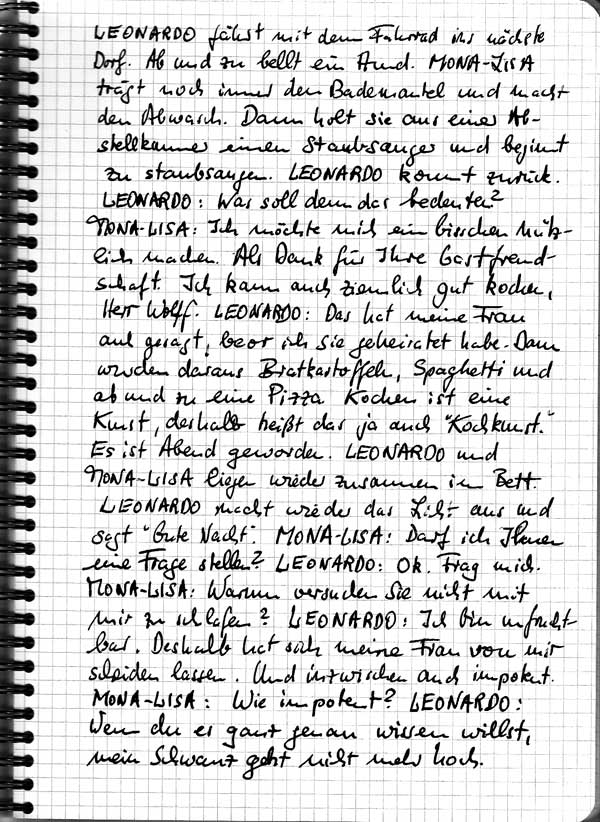 LEONARDO fährt mit dem Fahrrad ins nächste
Dorf. Ab und zu bellt ein Hund. MONA-LISA
trägt noch immer den Bademantel und macht
den Abwasch. Dann holt sie aus einer Ab-
stellkammer einen Staubsauger und beginnt
zu staubsaugen. LEONARDO kommt zurück.
LEONARDO: Was soll denn das bedeuten?
MONA-LISA: Ich möchte mich ein bisschen nütz-
lich machen. Als Dank für Ihre Gastfreund-
schaft. Ich kann auch ziemlich gut kochen,
Herr Wolff. LEONARDO: Das hat meine Frau
auch gesagt, bevor ich sie geheiratet habe. Dann
wurden daraus Bratkartoffeln, Spaghetti und
ab und zu eine Pizza. Kochen ist eine
Kunst, deshalb heißt das ja auch "Kochkunst."
Es ist Abend geworden. LEONARDO und
MONA-LISA liegen wieder zusammen im Bett.
LEONARDO macht wieder das Licht aus und
sagt "Gute Nacht". MONA-LISA: Darf ich Ihnen
eine Frage stellen? LEONARDO: Ok. Frag mich.
MONA-LISA: Warum versuchen Sie nicht mit
mir zu schlafen? LEONARDO: Ich bin unfrucht-
bar. Deshalb hat sich meine Frau von mir
scheiden lassen. Und inzwischen auch impotent.
MONA-LISA: Wie impotent? LEONARDO:
Wenn du es ganz genau wissen willst,
mein Schwanz geht nicht mehr hoch.